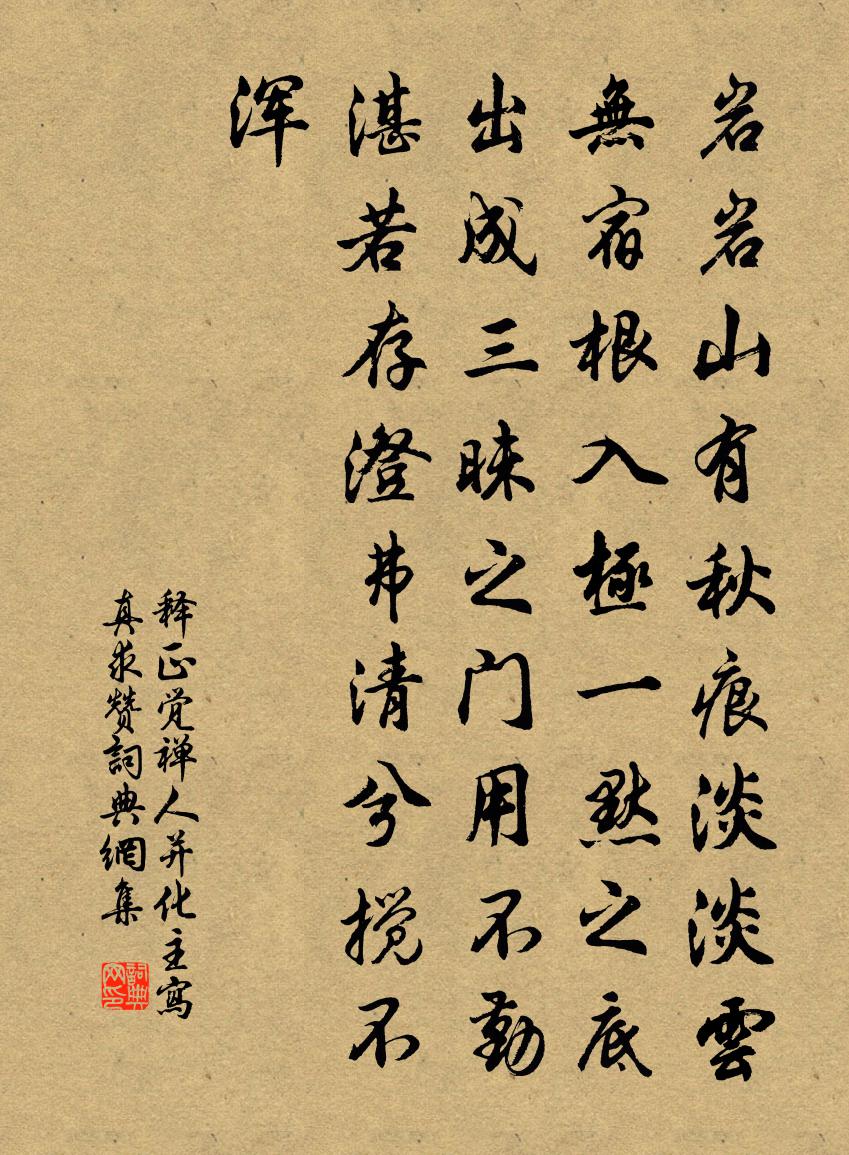 岩岩山有秋痕淡淡雲
無宿根入極一默之底
出成三昧之门用不勤
湛若存澄弗清兮搅不
浑
释正觉禅人并化主寫
真求赞詞典網集
詞典网印